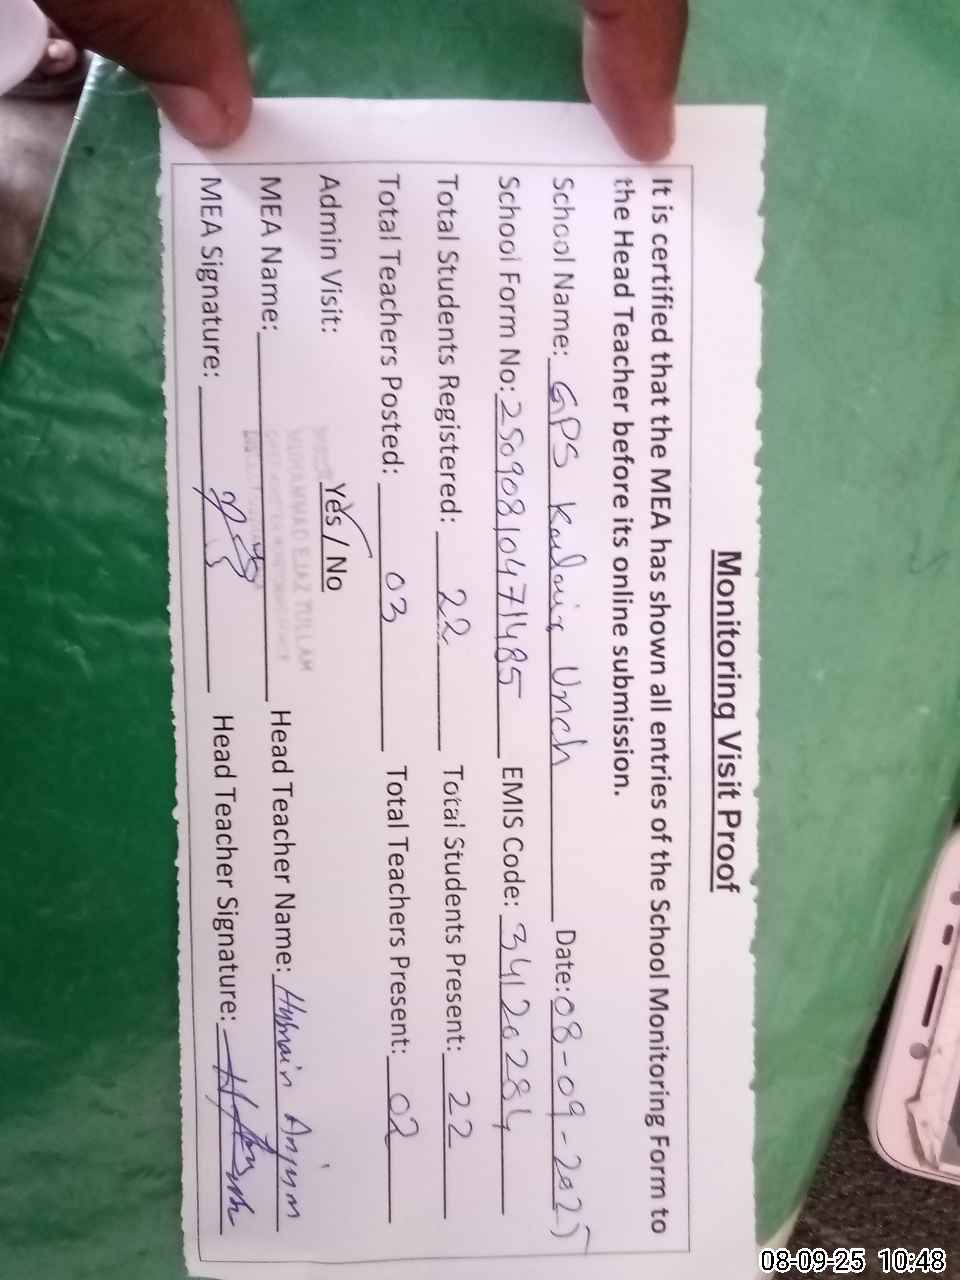 Monitoring Visit Proof
It is certified that the MEA has shown all entries of the School Monitoring Form to
the Head Teacher before its online submission.
School Name: GPS Unch Date: 08-09-2025
School Form No: 25090810471485 EMIS Code: 34120284
Total Students Registered: 22 Total Students Present: 22
Total Teachers Posted: 03 Total Teachers Present: 02
Admin Visit: Yes / No
MUHAMMAD EJAZ TULLAH
MEA Name: Head Teacher Name: Husnain Anjum
MEA Signature: Head Teacher Signature:
08-09-25 10:48